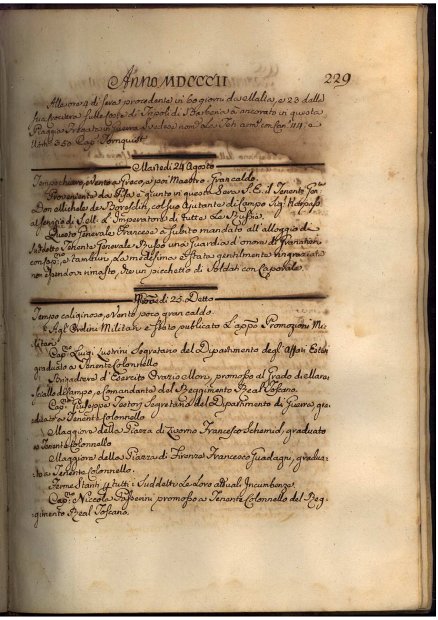 Anno MDCCCII 229
Alle ore 4 di sera procedente in 60 giorni da Malta, e 23 dalla
sua crociera sulle coste di Tripoli di Barberia à ancorato in questa
Piaggia Fregata da guerra Svedese nom. La Teti arm. con Can. 44: e
Uom. 350 Cap. Tornquist
Martedì 24 Agosto
Tempo chiaro, e Vento a Greco, e poi Maestro. Gran caldo.
Proveniente da Pisa e giunto in questa Sera S. E. il Tenente Gen.
Don Michele de col suo Ajutante di Campo Sig.
al servizio di S. M. L'Imperatore di tutte le Russie.
Questo Generale Francese à subito mandato all'alloggio di
suddetto Tenente Generale Russo una Guardia d'onore di Granatieri
con Cap. e tamburi. La medesima è stata gentilmente ringraziata
non essendovi rimasto, che un picchetto di Soldati con Caporale.
Merc. di 25. Detto
Tempo caliginoso, e Vento poco, gran caldo.
Agl'Ordini Militari è stato pubblicato L'app. Promozioni Mi-
litari
Cap. Luigi Segretario del Dipartimento degl'Affari Esteri
graduato a Tenente Colonnello
Brigadiere d'Esercito Orazio Mori, promosso al Grado di Mare-
sciallo di Campo, e Comandante del Reggimento Real Toscano.
Cap. Giuseppe Tostoni Segretario del Dipartimento di Guerra gra-
duato a Tenente Colonnello
Maggiore della Piazza di Livorno Francesco Schemid, graduato
a Tenente Colonnello
Maggiore della Piazza di Firenze Francesco Guadagni, gradua-
to a Tenente Colonnello.
Ferme Stanti p. tutti i Suddetti Le Loro attuali Incumbenze.
Cap. Niccola Passerini promosso a Tenente Colonnello del Reg-
gimento Real Toscano.